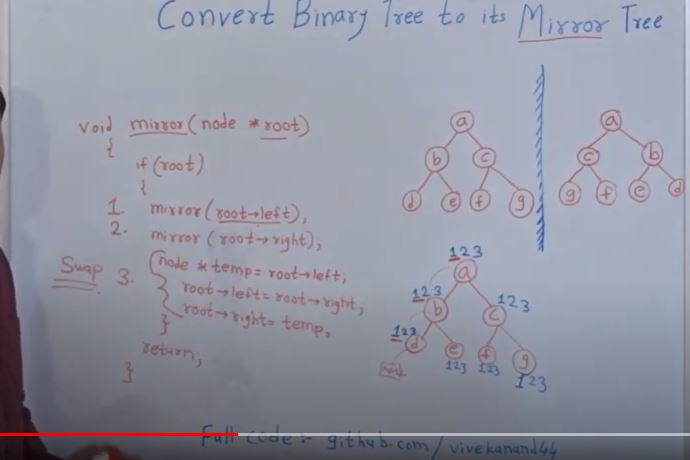 Convert Binary Tree to its Mirror Tree
void mirror(node *root)
{
if (root)
{
1. mirror(root→left);
2. mirror (root→right);
Swap 3. {node * temp = root→left;
root→left = root→right;
root→right = temp;
}
return;
}
a
b c
d e f g
a
c b
g f e d
1 2 3
a
1 2 3
b
1 2 3
c
1 2 3
d
e
f
g
1 2 3
1 2 3
1 2 3
Full code :- github.com/vivekanand44